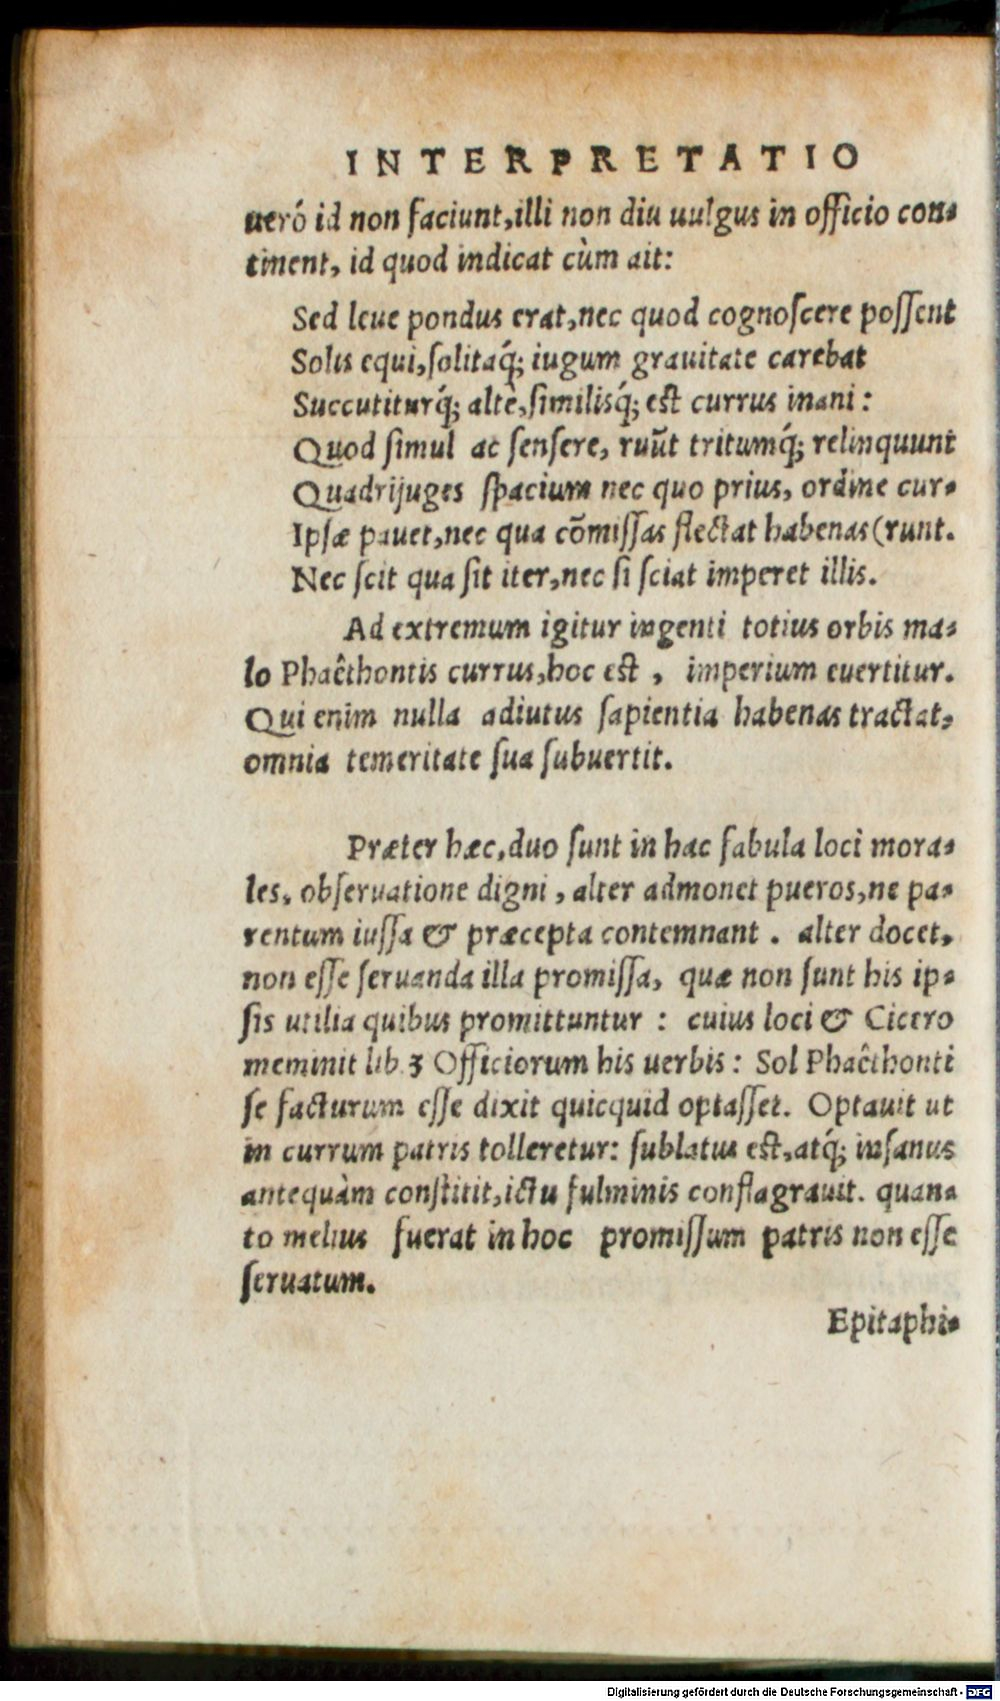 INTERPRETATIO
ueró id non faciunt, illi non diu uulgus in officio con-
tinent, id quod indicat cùm ait:
Sed leue pondus erat, nec quod cognoſcere poſſent
Solis equi, ſolitaq́; iugum grauitate carebat
Succutiturq́; altè, ſimilisq́; eſt currus inani:
Quod ſimul ac ſenſere, ruũt tritumq́; relinquunt
Quadrijuges ſpacium nec quo prius, ordine cur-
Ipſæ pauet, nec qua cõmiſſas flectat habenas (runt.
Nec ſcit qua ſit iter, nec ſi ſciat imperet illis.
Ad extremum igitur ingenti totius orbis ma-
lo Phaêthontis currus, hoc eſt, imperium euertitur.
Qui enim nulla adiutus ſapientia habenas tractat,
omnia temeritate ſua ſubuertit.
Præter hæc, duo ſunt in hac fabula loci mora-
les, obſeruatione digni, alter admonet pueros, ne pa-
rentum iuſſa & præcepta contemnant. alter docet,
non eſſe ſeruanda illa promiſſa, quæ non ſunt his ip-
ſis utilia quibus promittuntur: cuius loci & Cicero
meminit lib. 3 Officiorum his uerbis: Sol Phaêthonti
ſe facturum eſſe dixit quicquid optaſſet. Optauit ut
in currum patris tolleretur: ſublatus eſt, atq́; inſanus
antequàm conſtitit, ictu fulminis conflagrauit. quan-
to melius fuerat in hoc promiſſum patris non eſſe
ſeruatum.
Epitaphi-
Digitalisierung gefördert durch die Deutsche Forschungsgemeinschaft - DFG